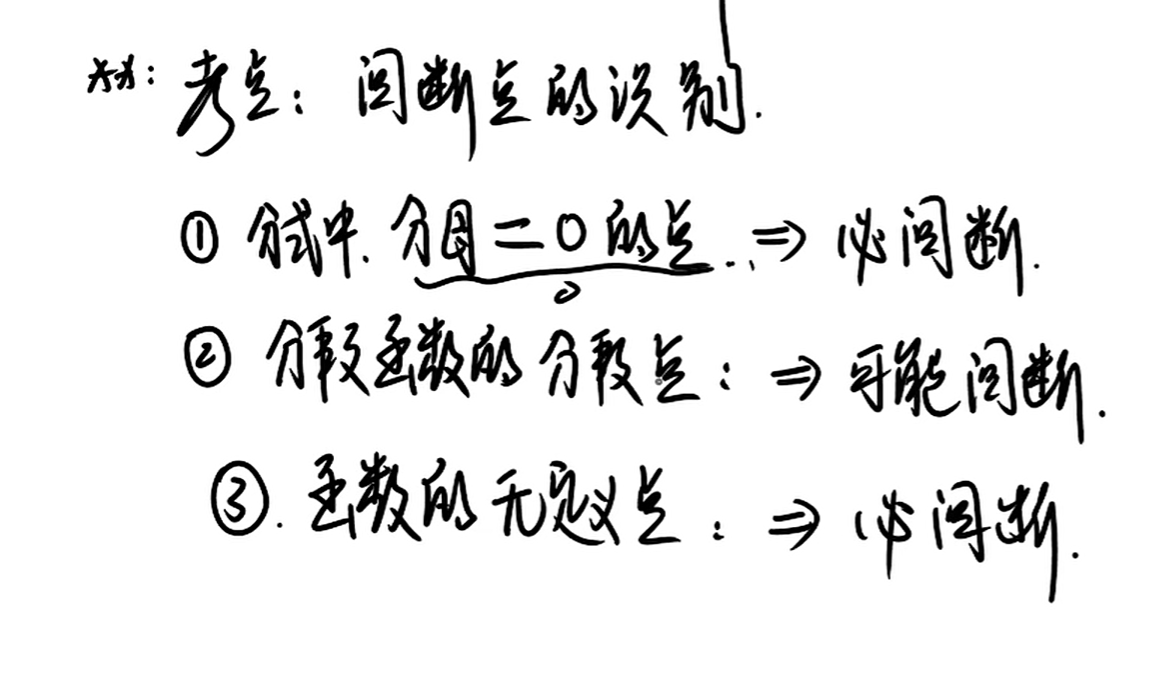 考点: 间断点的识别.
① 分式中. 分母=0的点..⇒必间断.
② 分段函数的分段点:⇒可能间断.
③. 函数的无定义点:⇒必间断.